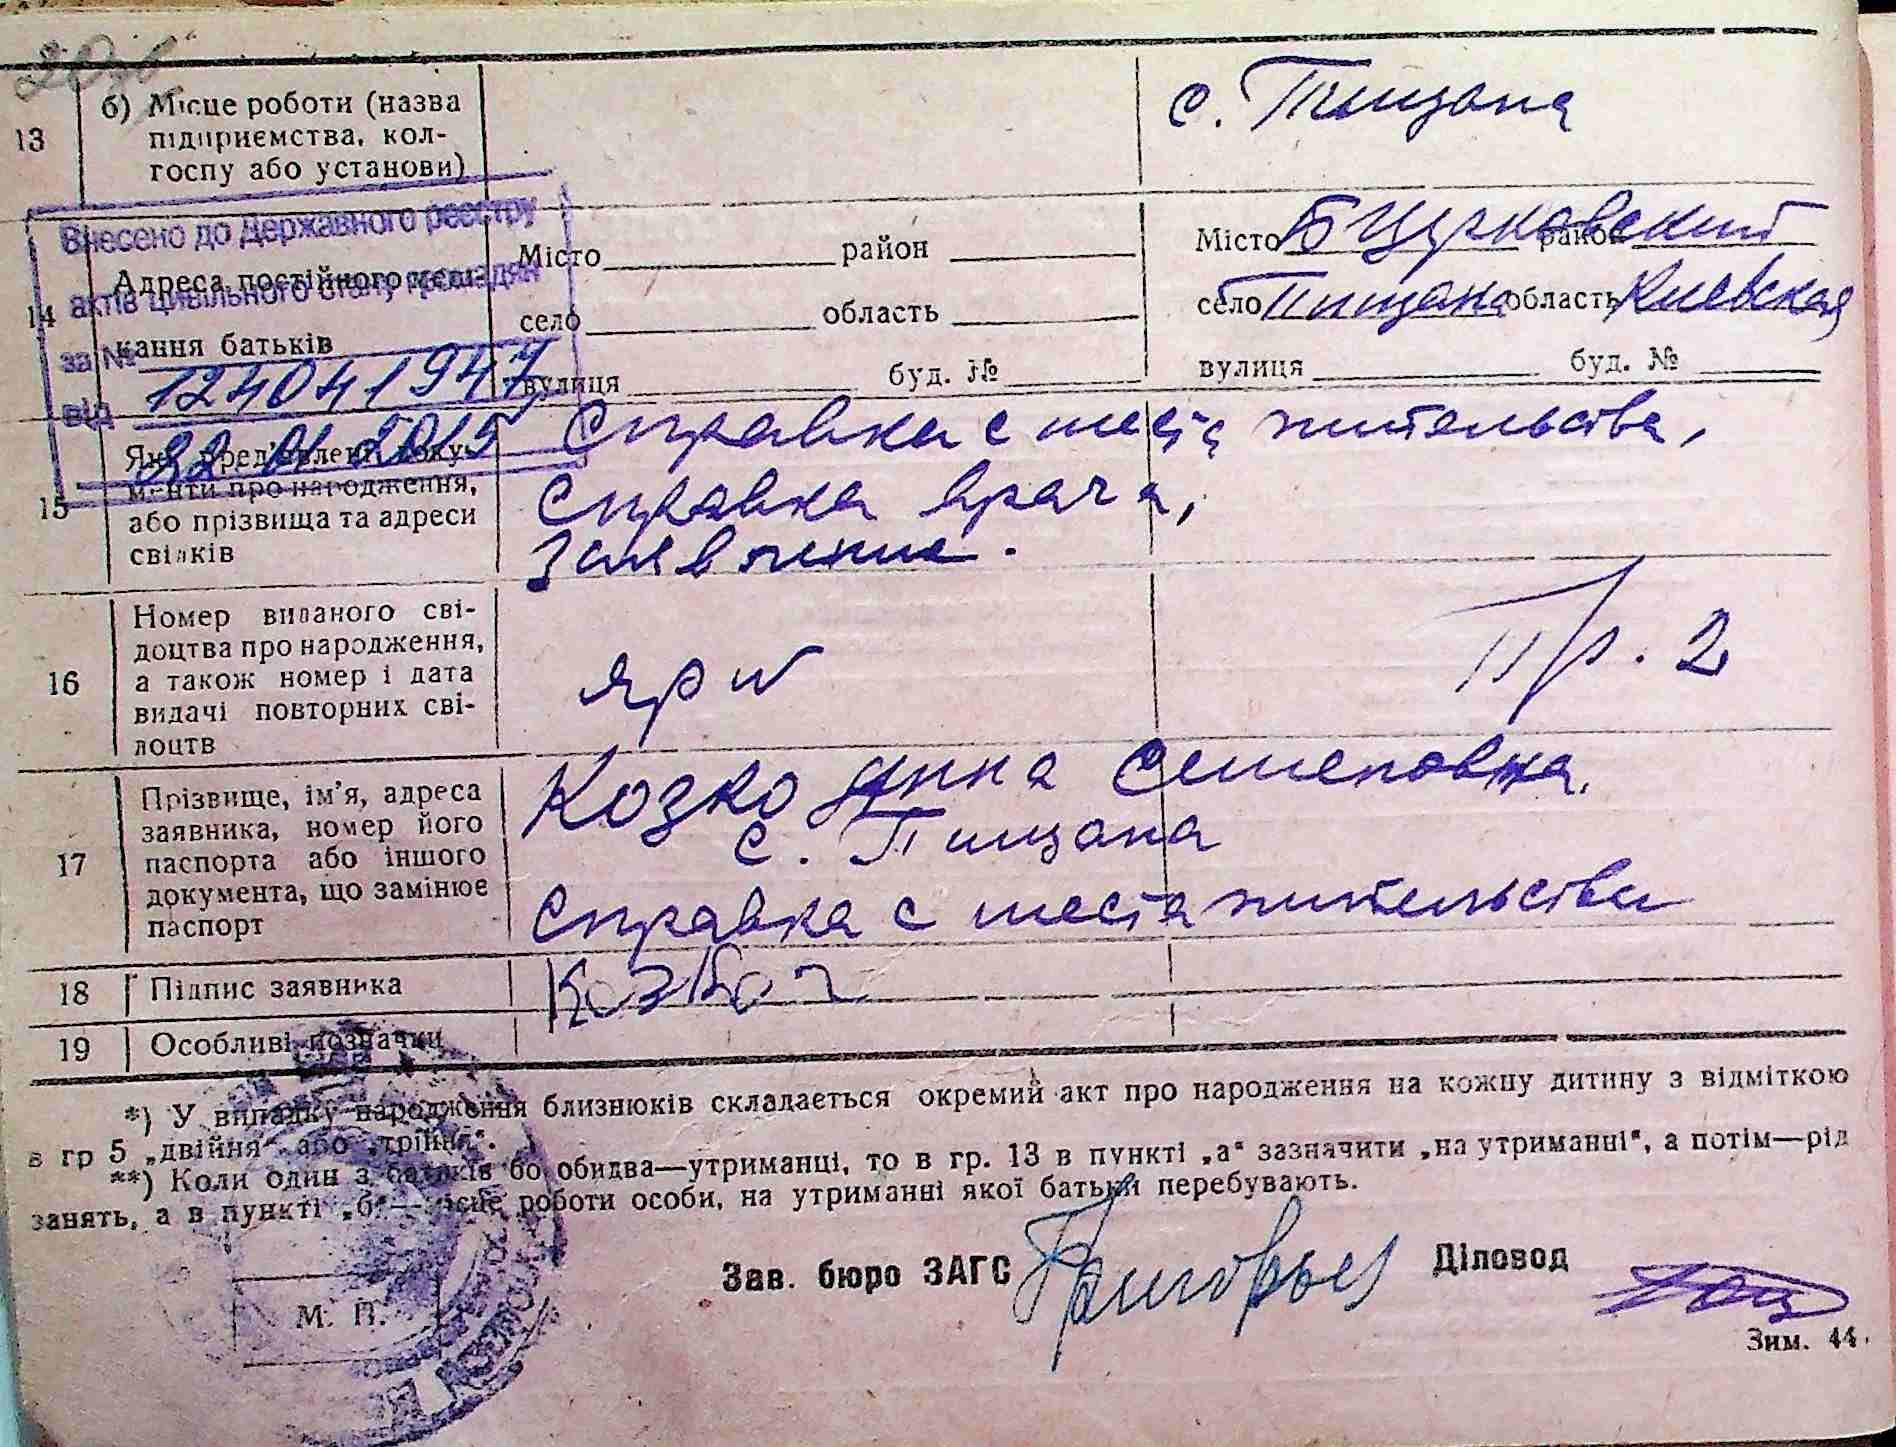 13 б) Місце роботи (назва
підприємства, кол-
госпу або установи)
с. Пищана
Внесено до Державного реєстру
актів цивільного стану громадян
за № 12404194 7
від 22 01 2015
14 Адреса постійного меш-
кання батьків
Місто район
село область
вулиця буд. №
Місто Б Церковский район
село Пищана область Киевская
вулиця буд. №
15 Які пред'явлені доку-
менти про народження,
або прізвища та адреси
свідків
Справка с места жительства,
Справка врача,
Заявление.
16 Номер виданого сві-
доцтва про народження,
а також номер і дата
видачі повторних сві-
доцтв
Пр. 2
17 Прізвище, ім'я, адреса
заявника, номер його
паспорта або іншого
документа, що замінює
паспорт
Козко Анна Семеновна.
с. Пищана
Справка с места жительства
18 Підпис заявника
19 Особливі позначки
*) У випадку народження близнюків складається окремий акт про народження на кожну дитину з відміткою
в гр 5 „двійня“ або „трійня“.
**) Коли один з батьків бо обидва—утриманці, то в гр. 13 в пункті „а“ зазначити „на утриманні“, а потім—рід
занять, а в пункті „б“— місце роботи особи, на утриманні якої батьки перебувають.
Зав. бюро ЗАГС Григорьев Діловод
М. П.
Зим. 44